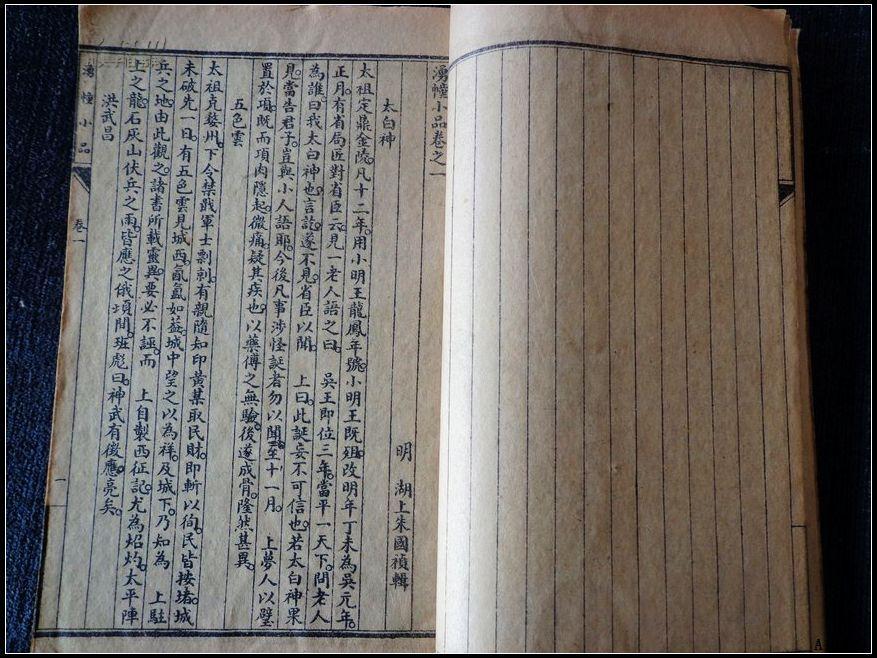 湧幢小品卷之一
明 湖上朱國禎輯
太白神
太祖定鼎金陵。凡十二年。用小明王龍鳳年號。小明王既殂。改明年丁未為吳元年。
正月。有省局匠對省臣云。見一老人語之曰。 吳王即位三年。當平一天下。問老人
為誰。曰我太白神也。言訖。遂不見。省臣以聞。 上曰。此誕妄不可信也。若太白神果
見。當告君子。豈與小人語耶。今後凡事涉怪誕者勿以聞。至十一月。 上夢人以璧
置於項。既而項肉隱起。微痛。疑其疾也。以藥傅之無驗。後遂成骨。隆然甚異。
五色雲
太祖克婺州。下令禁戢軍士剽刦。有親隨知印黃某取民財。即斬以徇。民皆按堵。城
未破先一日。有五色雲見城西。氤氳如蓋。城中望之以為祥。及城下。乃知為 上駐
兵之地。由此觀之。諸書所載靈異。要必不誣。而 上自製西征記。尤為炤灼。太平陣
上之龍。石灰山伏兵之雨。皆應之俄頃間。班彪曰。神武有徵應。亮矣。
洪武昌
湧幢小品
卷一
一
A